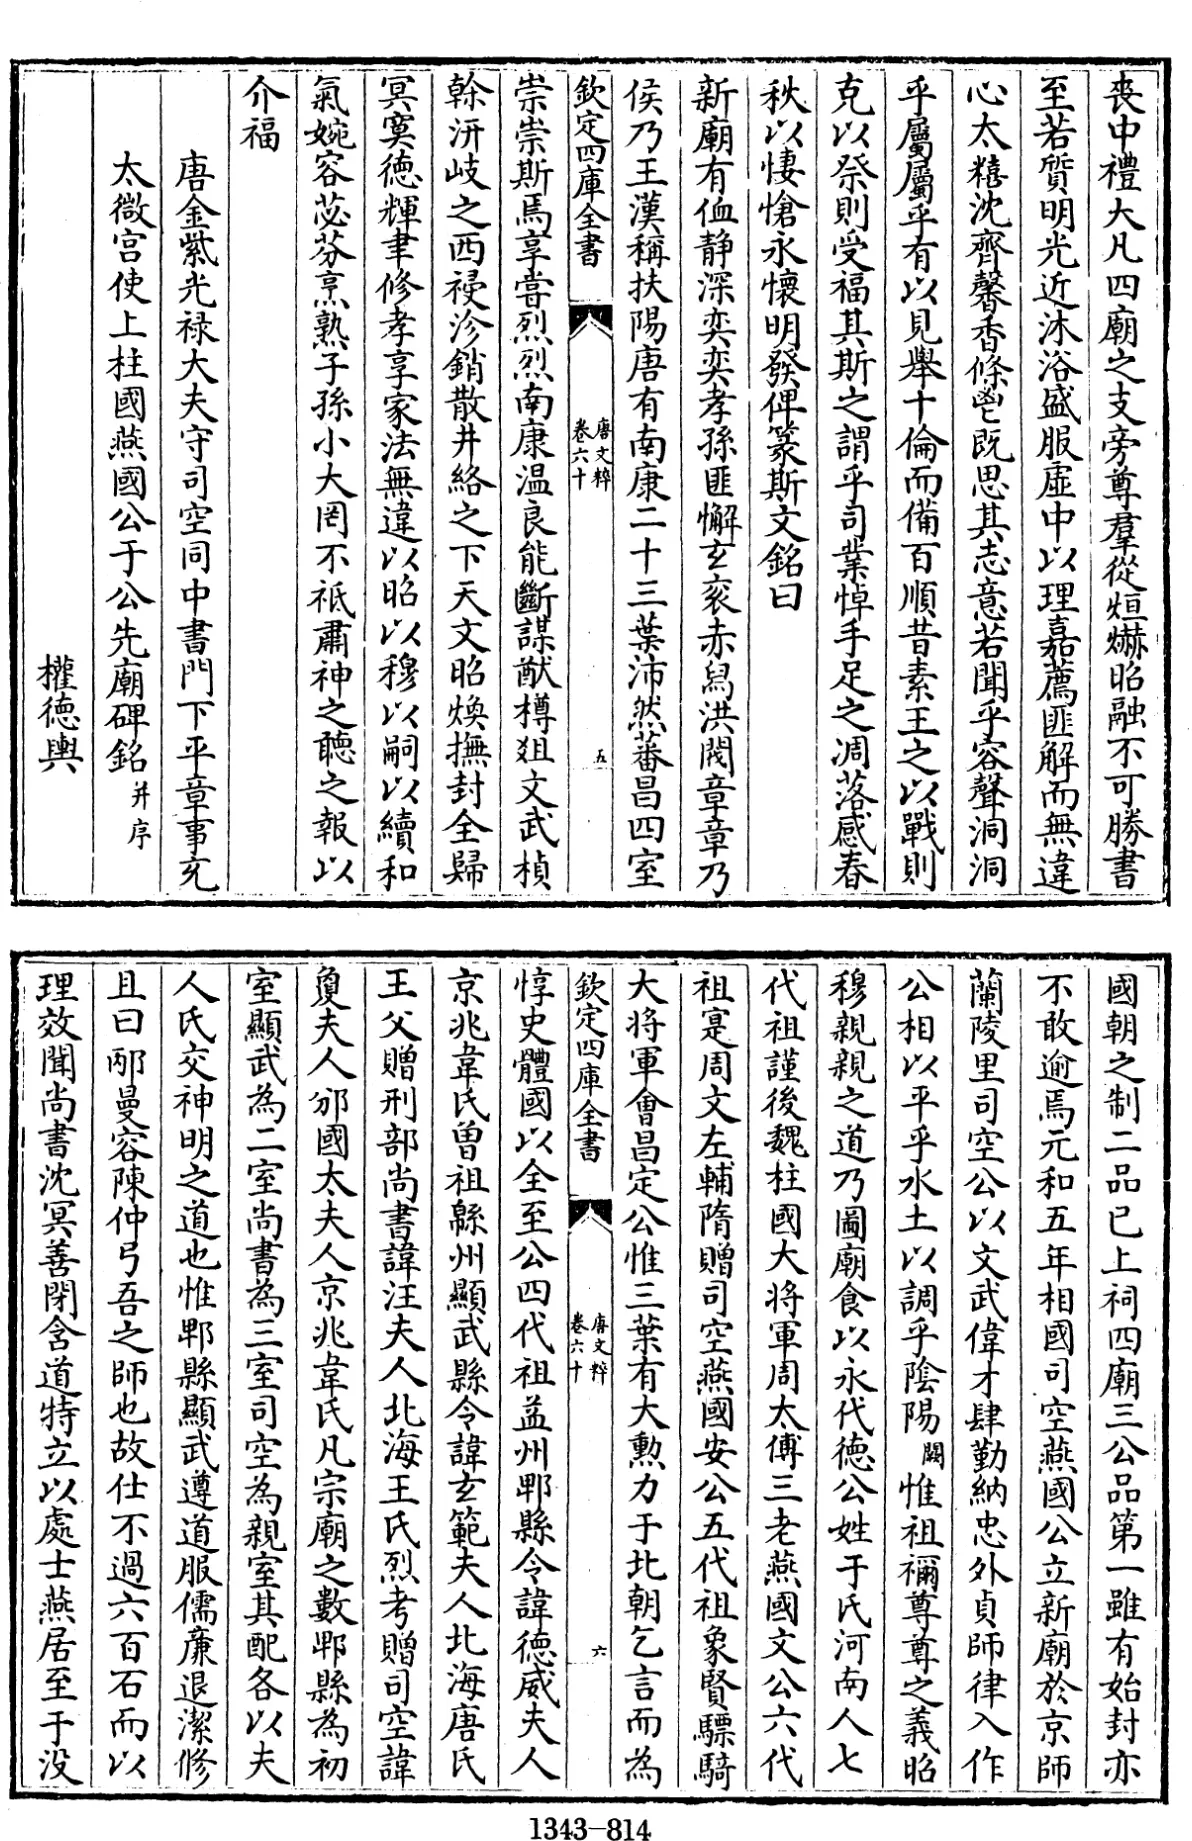 喪中禮大凡四廟之支旁尊羣從烜爀昭融不可勝書
至若質明光近沐浴盛服虛中以理嘉薦匪解而無違
心太糦沈齊馨香條鬯既思其志意若聞乎容聲洞洞
乎屬屬乎有以見舉十倫而備百順昔素王之以戰則
克以祭則受福其斯之謂乎司業悼手足之凋落感春
秋以悽愴永懷明發俾篆斯文銘曰
新廟有侐静深奕奕孝孫匪懈玄衮赤舄洪閥章章乃
侯乃王漢稱扶陽唐有南康二十三葉沛然蕃昌四室
欽定四庫全書
唐文粹
卷六十
五
崇崇斯焉享嘗烈烈南康温良能斷謀猷樽俎文武楨
榦汧岐之西祲沴銷散井絡之下天文昭煥撫封全歸
冥寞德輝聿修孝享家法無違以昭以穆以嗣以續和
氣婉容苾芬烹熟子孫小大罔不祇肅神之聽之報以
介福
唐金紫光禄大夫守司空同中書門下平章事充
太微宫使上柱國燕國公于公先廟碑銘并序
權德輿
國朝之制二品已上祠四廟三公品第一雖有始封亦
不敢逾焉元和五年相國司空燕國公立新廟於京師
蘭陵里司空公以文武偉才肆勤納忠外貞師律入作
公相以平乎水土以調乎陰陽闕惟祖禰尊尊之義昭
穆親親之道乃圖廟食以永代德公姓于氏河南人七
代祖謹後魏柱國大將軍周太傅三老燕國文公六代
祖寔周文左輔隋贈司空燕國安公五代祖象賢驃騎
大將軍會昌定公惟三葉有大勲力于北朝乞言而為
欽定四庫全書
唐文粹
卷六十
六
惇史體國以全至公四代祖益州郫縣令諱德威夫人
京兆韋氏曽祖緜州顯武縣令諱玄範夫人北海唐氏
王父贈刑部尚書諱汪夫人北海王氏烈考贈司空諱
夐夫人邠國太夫人京兆韋氏凡宗廟之數郫縣為初
室顯武為二室尚書為三室司空為親室其配各以夫
人氏交神明之道也惟郫縣顯武遵道服儒亷退潔修
且曰邴曼容陳仲弓吾之師也故仕不過六百石而以
理效聞尚書沈冥善閉含道特立以處士燕居至于没
1343-814